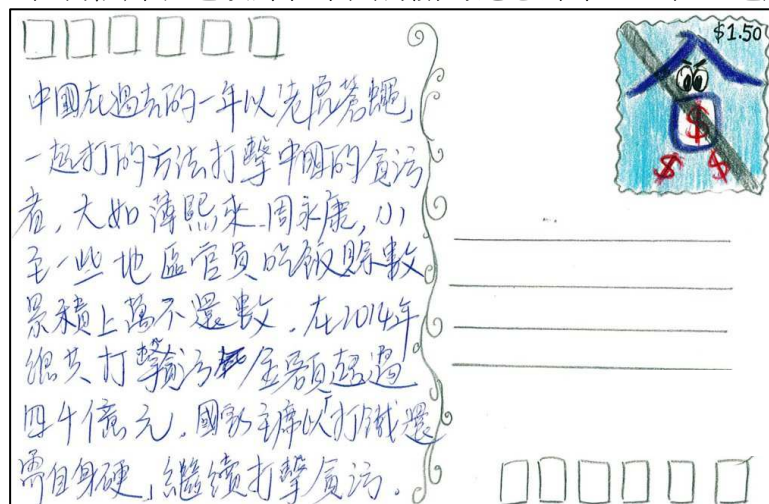 $1.50
$
$ $
中國在過去的一年以老虎蒼蠅
一起打的方法打擊中國的貪污
者,大如薄熙來、周永康,小
至一些地區官員吃飯賒數
累積上萬不還數.在2014年
總共打擊貪污金額超過
四千億元,國家主席以「打鐵還
需自身硬」繼續打擊貪污.